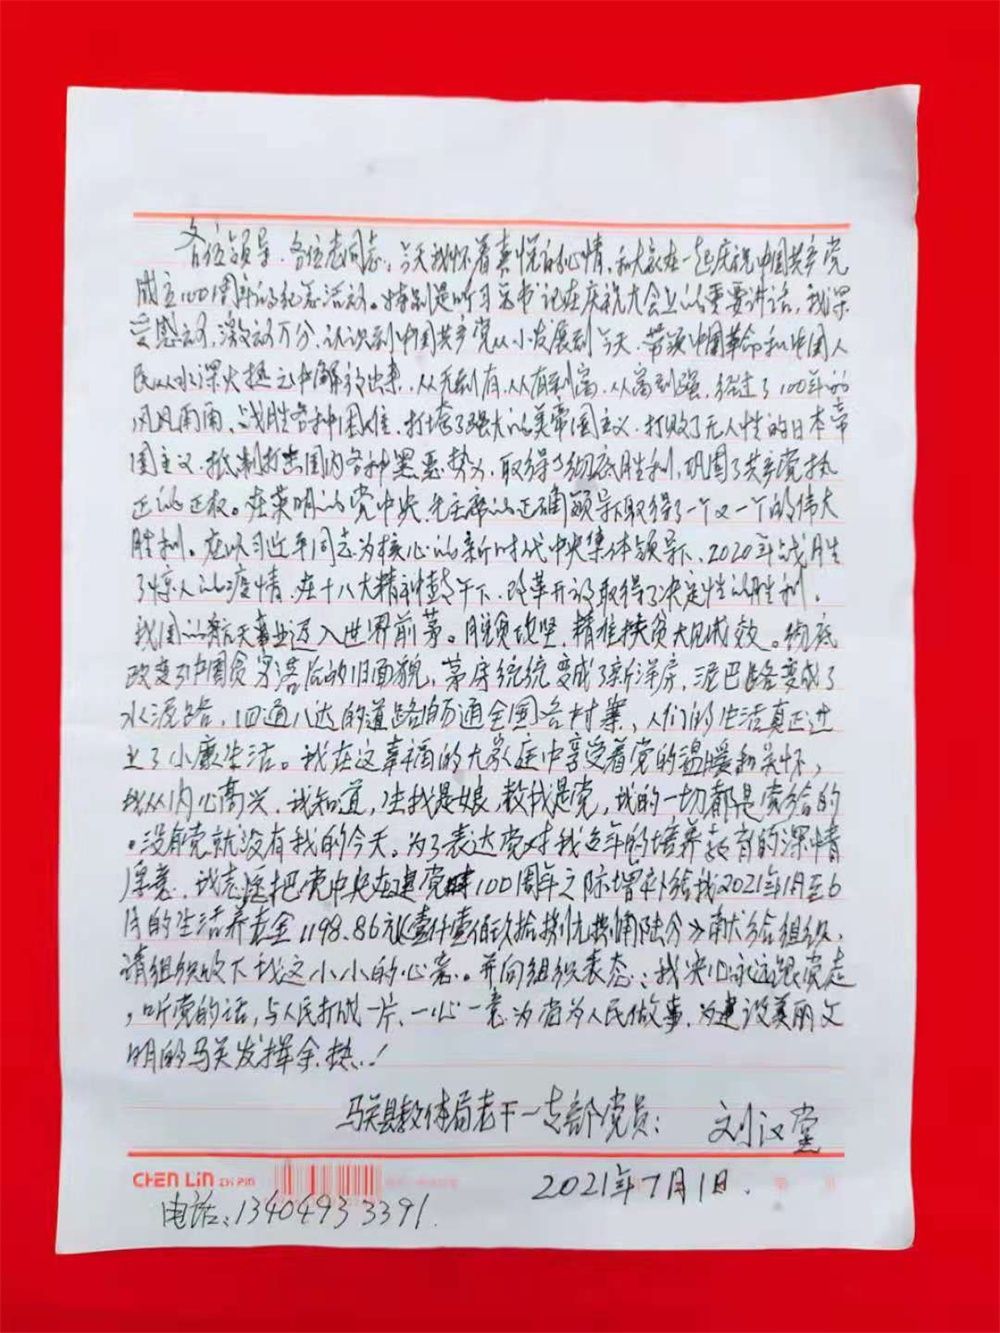 各位领导、各位老同志：今天我怀着喜悦的心情，和大家在一起庆祝中国共产党
成立100周年的纪念活动。特别是听习总书记在庆祝大会上的重要讲话，我深
受感动，激动万分，认识到中国共产党从小发展到今天，带领中国革命和中国人
民从水深火热之中解放出来，从无到有，从有到富，从富到强，经过了100年的
风风雨雨，战胜各种困难，打垮了强大的美帝国主义，打败了无人性的日本帝
国主义，抵制打击国内各种黑恶势力，取得了彻底胜利，巩固了共产党执
正的正权。在英明的党中央、毛主席的正确领导下取得了一个又一个的伟大
胜利。在以习近平同志为核心的新时代中央集体领导下，2020年战胜
了惊人的疫情，在十八大精神鼓午下，改革开放取得了决定性的胜利。
我国的航天事业迈入世界前茅。脱贫攻坚，精准扶贫大见成效。彻底
改变了中国贫穷落后的旧面貌，茅房统统变成了新洋房，泥巴路变成了
水泥路，四通八达的道路畅通全国各村寨，人们的生活真正过
上了小康生活。我在这幸福的大家庭中享受着党的温暖和关怀，
我从内心高兴，我知道，生我是娘，教我是党，我的一切都是党给的
。没有党就没有我的今天。为了表达党对我这年的培养教育的深情
厚意，我志愿把党中央在建党100周年之际增补给我2021年1月至6
月的生活养老金1198.86元（壹仟壹佰玖拾捌元捌角陆分》献给组织，
请组织收下我这小小的心意。并向组织表态：我决心永远跟党走
，听党的话，与人民打成一片、一心一意为党为人民做事，为建设美丽文
明的马关发挥余热！
马关县教体局老干一支部党员：刘汉堂
CHEN LIN ZHI PIN
2021年7月1日.
电话：13404933391.